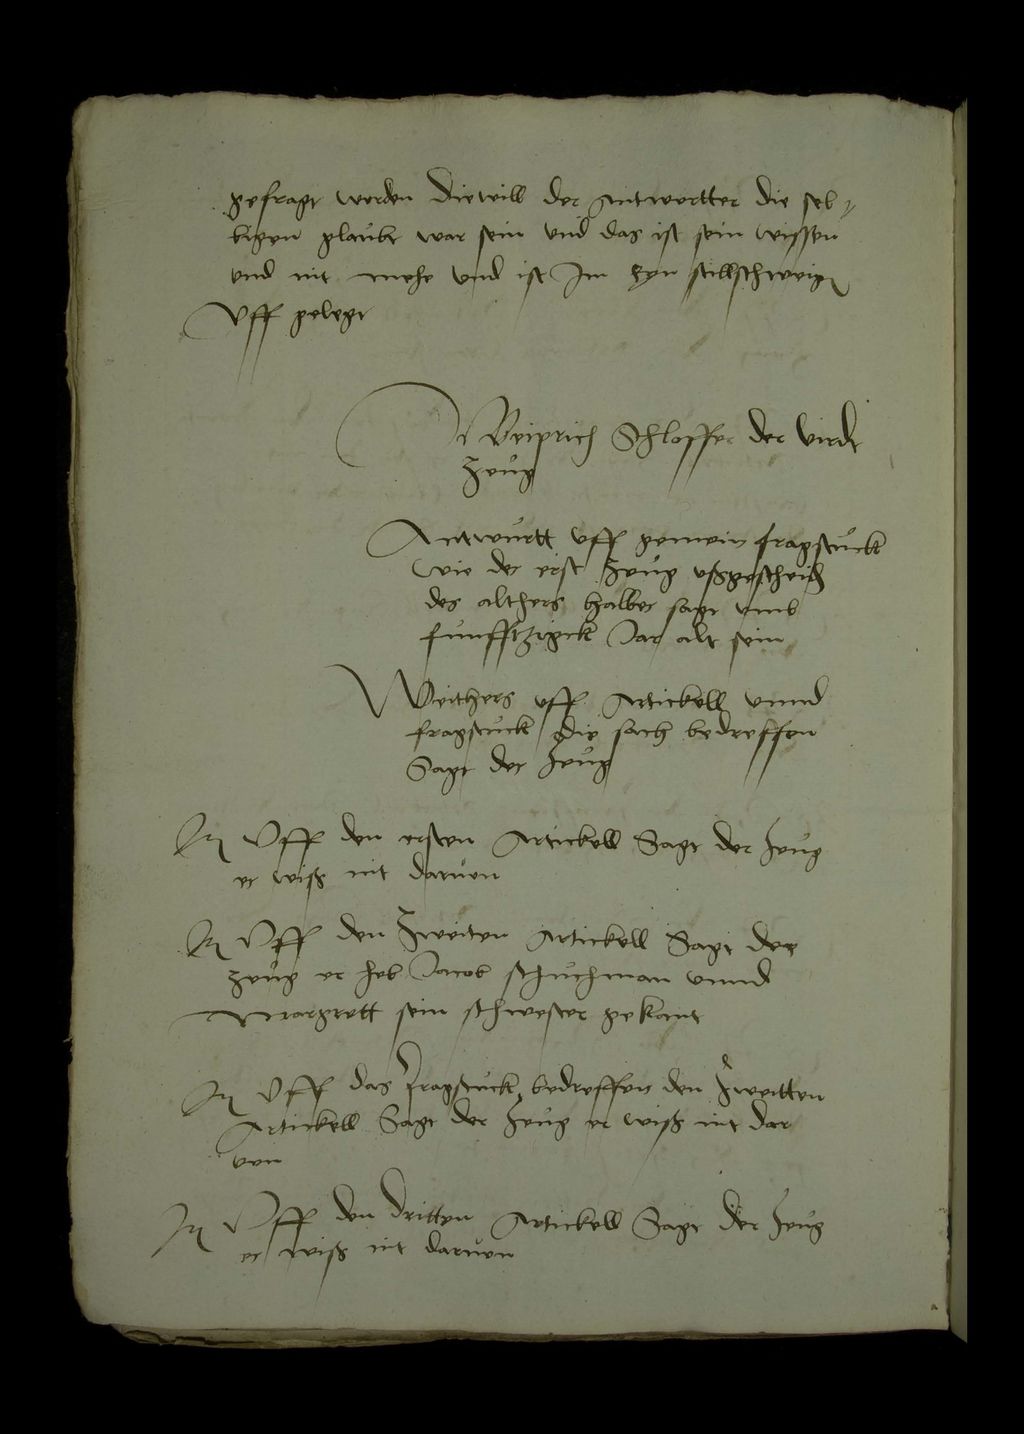 gefragt werden diewill der Antwortter die sel-
bigen glaubt war sein und das ist sein wissen
und nit mehe und ist Im eyn stillschweig
Uff gelegt
Weiprich Schlosser der virdt
Zeug
Antwurtt uff gemein fragstuck
wie der erst Zeug ußgescheid
des althers halber sagt umb
funfftzigck Jar alt sein
Weithers uff Artickell unnd
fragstuck die sach bedreffen
Sagt der Zeug
Jt Uff den ersten Artickell Sagt der Zeug
er wiß nit darvon
Jt Uff den Zweiten Artickell Sagt der
Zeug er heb Jacob schuchman unnd
Margrett sein schwester gekant
Jt Uff das fragstuck bedreffen den Zweitten
Artickell Sagt der Zeug er wiß nit dar
von
Jt Uff den dritten Artickell Sagt der Zeug
er wiß nit darvon